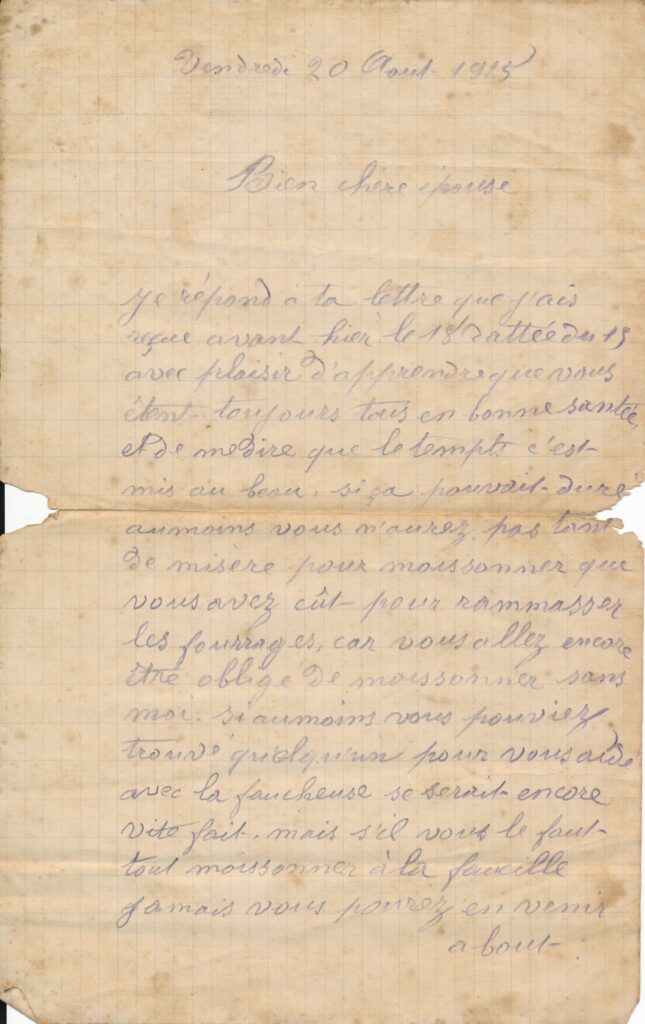 Vendredi 20 Aout 1915
Bien chère épouse
Je répond à ta lettre que j'ais
reçue avant hier le 18 dattée du 15
avec plaisir d'apprendre que vous
étent toujours tous en bonne santée,
et de me dire que le tempts c'est
mis au beau. si ça pouvait duré
aumoins vous n'aurez pas tant
de misère pour moissonner que
vous avez eût pour rammasser
les fourrages, car vous allez encore
être obligé de moissonner sans
moi. si aumoins vous pouviez
trouvé quelqu'un pour vous aidé
avec la faucheuse se serait encore
vite fait. mais s'il vous le faut
tout moissonner à la faucille
jamais vous pourez en venir
a bout